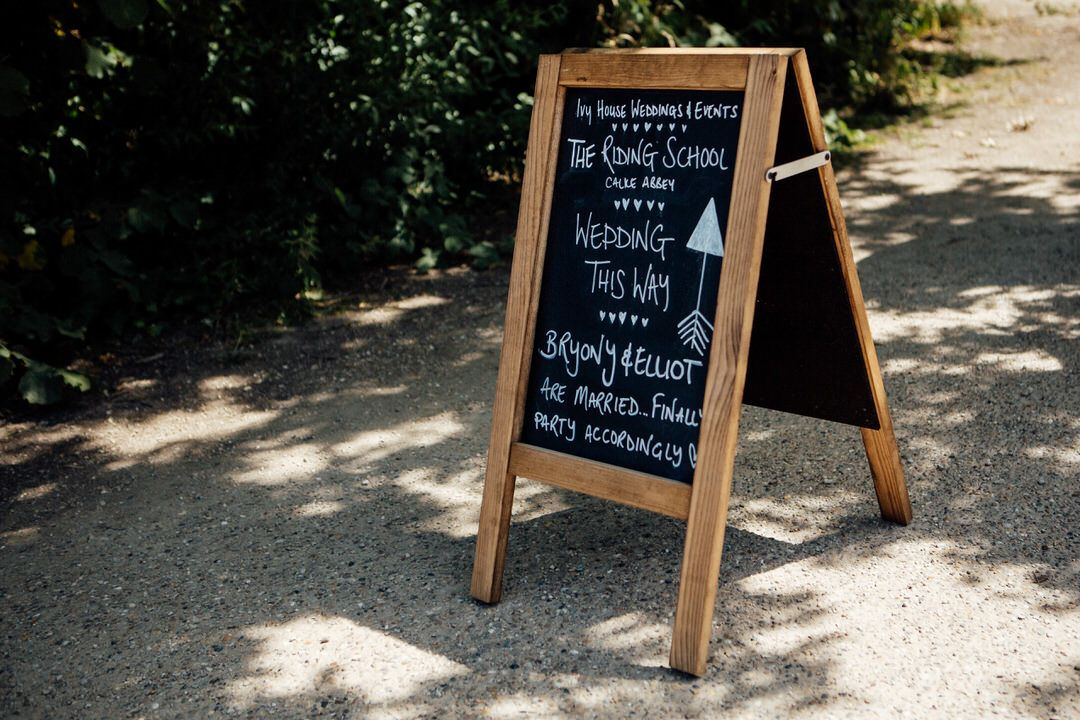 Ivy House Weddings & Events
The Riding School
Calke Abbey
Wedding
This Way
Bryony & Elliot
Are Married... Finally
Party Accordingly